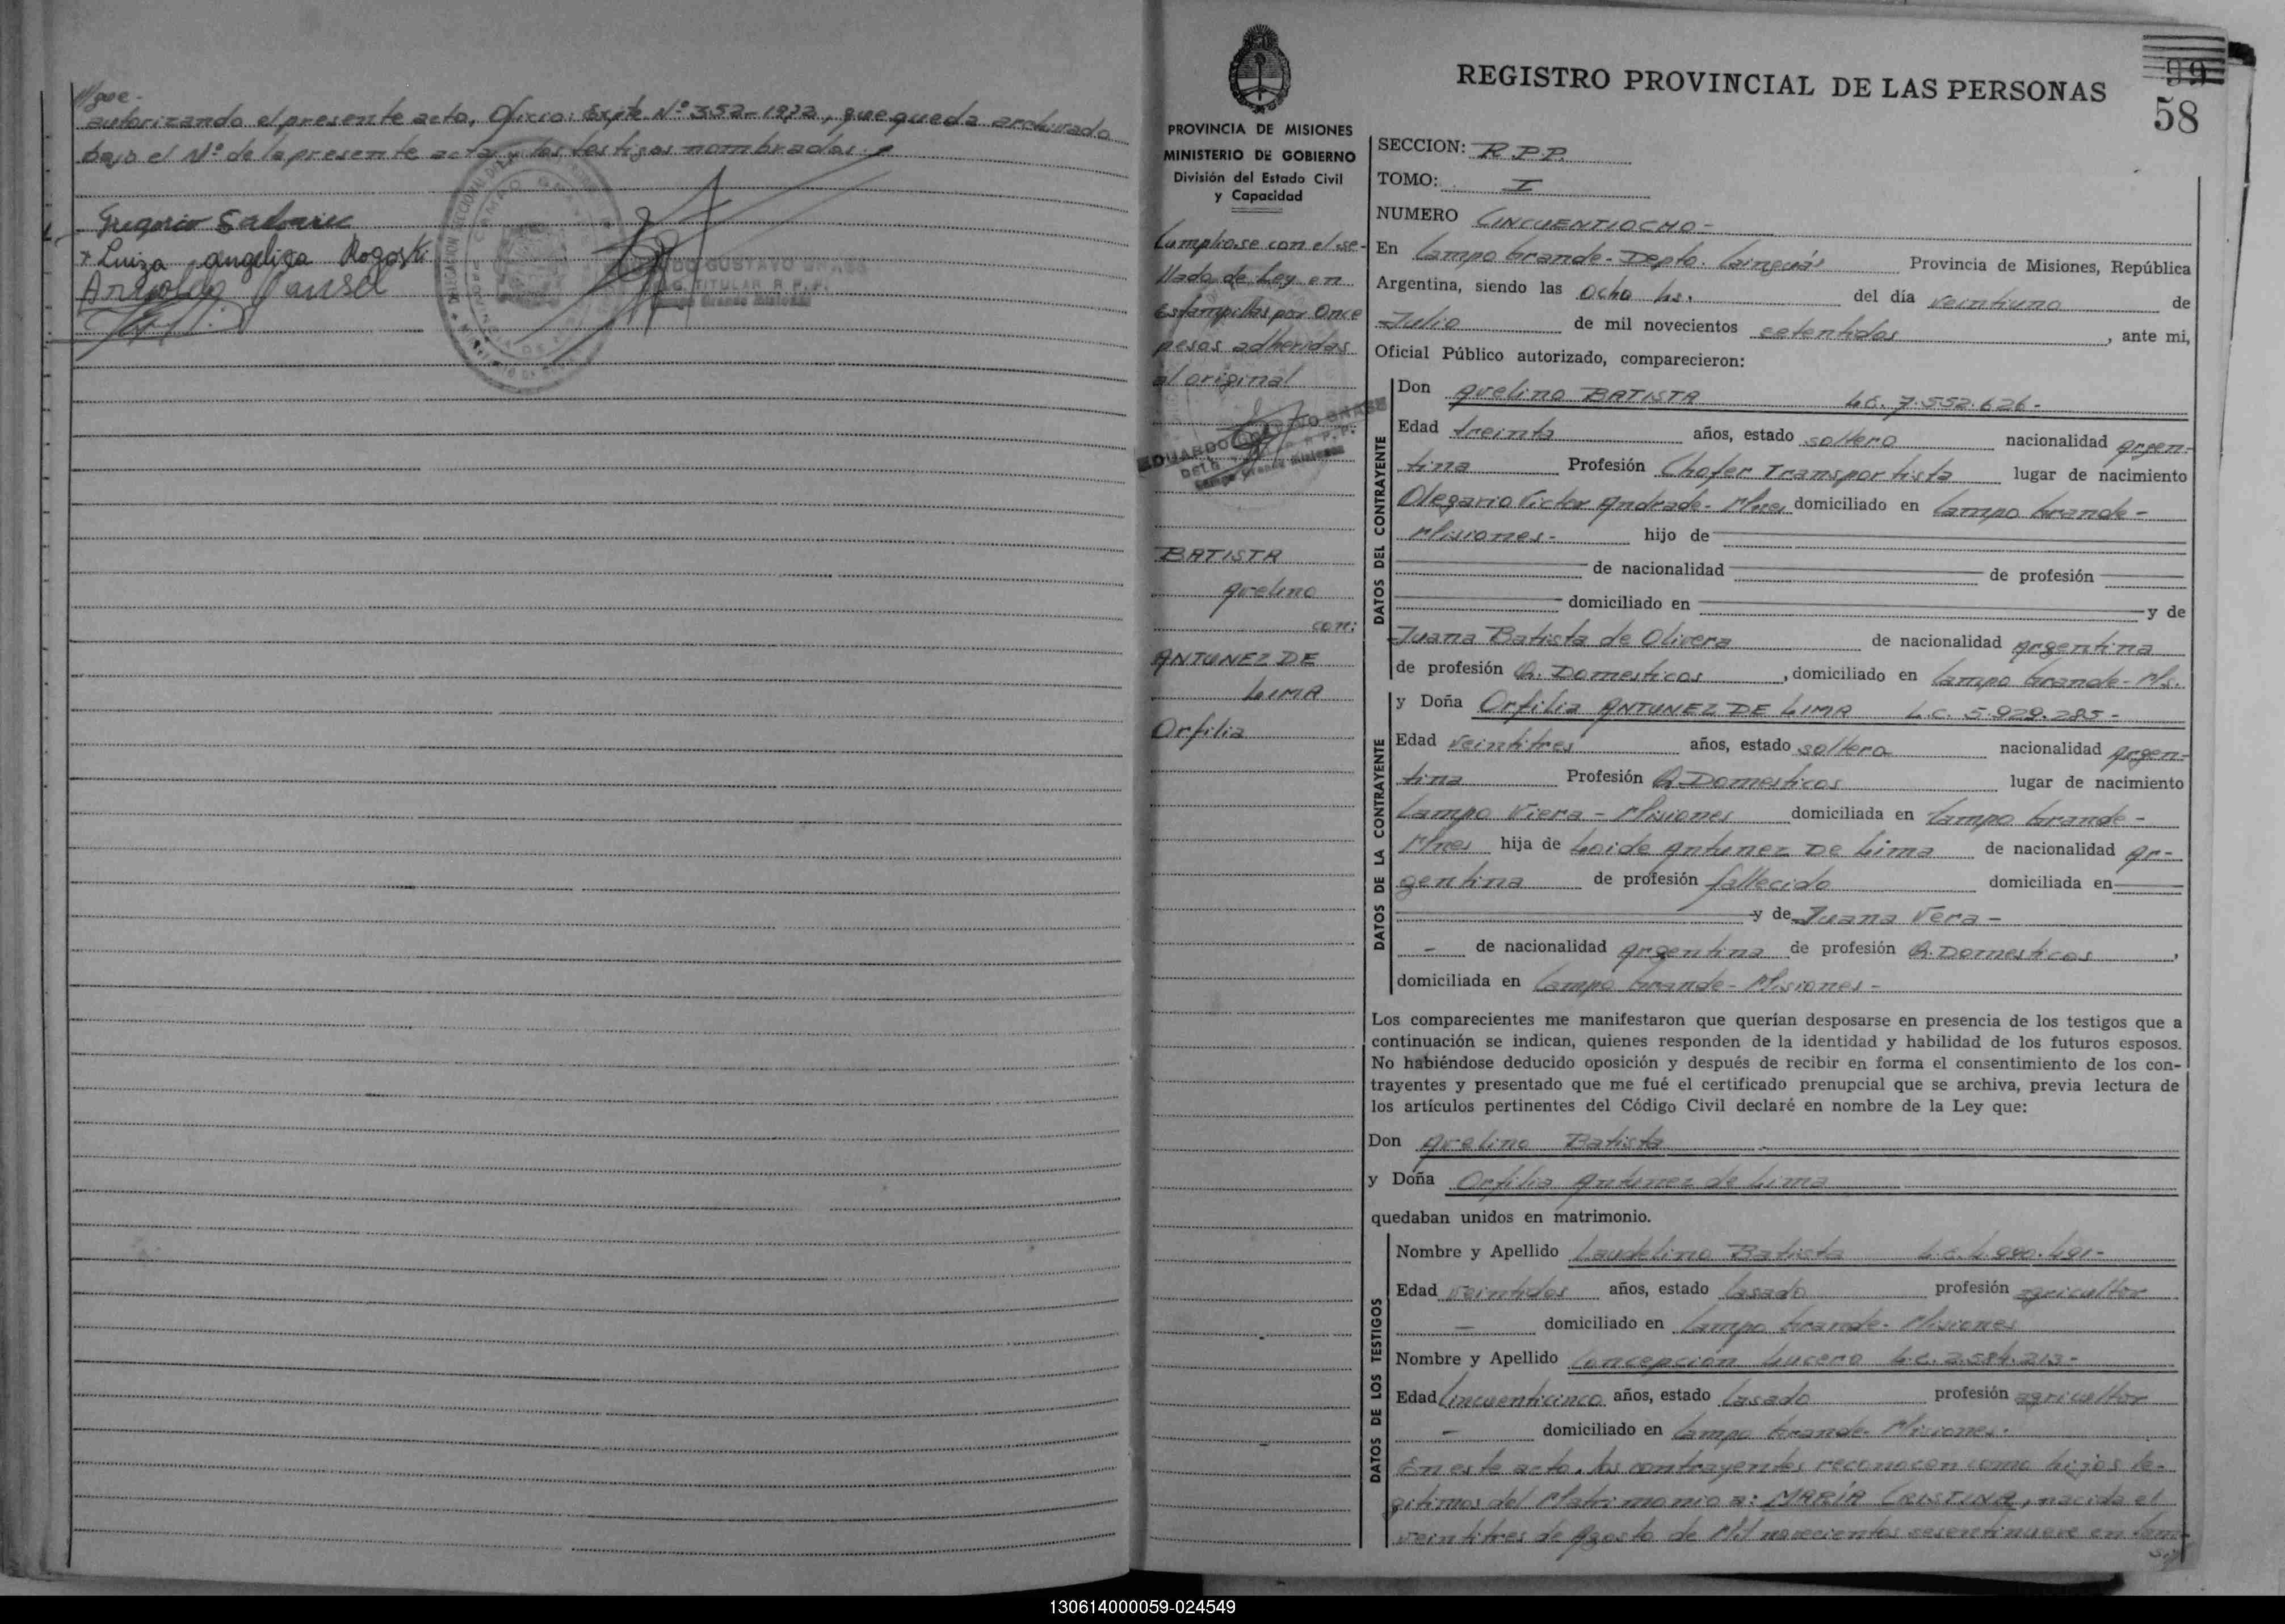 autorizando el presente acto, Oficio: Expte. Nº 352-1972, que queda archivado
bajo el Nº de la presente acta y los testigos nombrados.
Luiza Angelica Rogoski
Arnoldo
REGISTRO PROVINCIAL DE LAS PERSONAS
99
58
PROVINCIA DE MISIONES
MINISTERIO DE GOBIERNO
División del Estado Civil
y Capacidad
Cumpliose con el se-
llado de Ley en
Estampillas por Once
pesos adheridas
al original
BATISTA
Avelino
con:
ANTUNEZ DE
LIMA
Orfilia
SECCION: R.P.P.
TOMO: I
NUMERO CINCUENTIOCHO-
En Campo Grande- Depto. Cainguás Provincia de Misiones, República
Argentina, siendo las Ocho hs. del día veintiuno de
Julio de mil novecientos setentidos, ante mi,
Oficial Público autorizado, comparecieron:
DATOS DEL CONTRAYENTE
Don Avelino BATISTA L.E. 7.552.626-
Edad treinta años, estado soltero nacionalidad argen-
tina Profesión Chofer Transportista lugar de nacimiento
Olegario Victor Andrade- Mnes domiciliado en Campo Grande-
Misiones- hijo de
de nacionalidad de profesión
domiciliado en y de
Juana Batista de Olivera de nacionalidad argentina
de profesión Q. Domesticos, domiciliado en Campo Grande- Ms.
DATOS DE LA CONTRAYENTE
y Doña Orfilia ANTUNEZ DE LIMA L.C. 5.929.285-
Edad veintitres años, estado soltera nacionalidad argen-
tina Profesión Q. Domesticos lugar de nacimiento
Campo Viera - Misiones domiciliada en Campo Grande-
Mnes hija de Loide Antunez De Lima de nacionalidad ar-
gentina de profesión fallecido domiciliada en
y de Juana Vera-
- de nacionalidad argentina de profesión Q. Domesticos,
domiciliada en Campo Grande- Misiones-
Los comparecientes me manifestaron que querían desposarse en presencia de los testigos que a
continuación se indican, quienes responden de la identidad y habilidad de los futuros esposos.
No habiéndose deducido oposición y después de recibir en forma el consentimiento de los con-
trayentes y presentado que me fué el certificado prenupcial que se archiva, previa lectura de
los artículos pertinentes del Código Civil declaré en nombre de la Ley que:
Don Avelino Batista
y Doña Orfilia Antunez de Lima
quedaban unidos en matrimonio.
DATOS DE LOS TESTIGOS
Nombre y Apellido Laudelino Batista
Edad veintidos años, estado Casado profesión agricultor
- domiciliado en Campo Grande- Misiones
Nombre y Apellido Concepción Lucero L.E. 2.584.213-
Edad Cincuenticinco años, estado Casado profesión agricultor
- domiciliado en Campo Grande- Misiones.
En este acto, los contrayentes reconocen como hijos le-
gitimos del Matrimonio a: MARIA CRISTINA, nacida el
veintitres de Agosto de Mil novecientos sesentinueve en
130614000059-024549